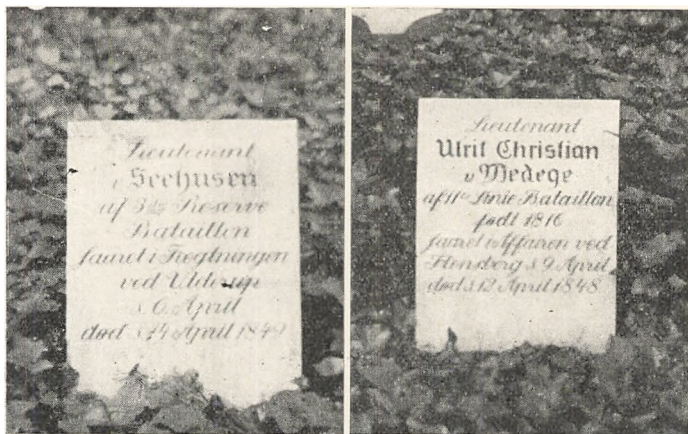 Lieutenant
v Seehusen
af 3die Reserve
Bataillon
saaret i Fægtningen
ved Ulderup
d 6 April
død d 14 April 1849
Lieutenant
Ulrik Christian
v Wedege
af 11te Linie Bataillon
født 1816
saaret i Affairen ved
Flensborg d 9 April
død d 12 April 1848